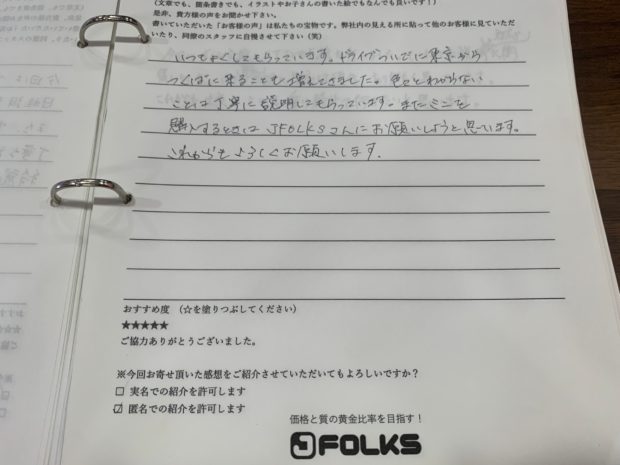 (文章でも、箇条書きでも、イラストやお子さんの書いた絵でもなんでも良いです！)
是非、貴方様の声をお聞かせ下さい。
書いていただいた「お客様の声」は私たちの宝物です。弊社内の見える所に貼って他のお客様に見ていただ
いたり、同僚のスタッフに自慢させて下さい（笑）
いつもよくしてもらっています。ドライブついでに東京から
つくばに来ることも増えてきました。色々とわからない
ことは丁寧に説明してもらっています。またミニを
購入するときはJFOLKSさんにお願いしようと思ています。
これからもよろしくお願いします。
おすすめ度 （☆を塗りつぶしてください）
★★★★★
ご協力ありがとうございました。
※今回お寄せ頂いた感想をご紹介させていただいてもよろしいですか？
☐ 実名での紹介を許可します
☑ 匿名での紹介を許可します
価格と質の黄金比率を目指す！
FOLKS